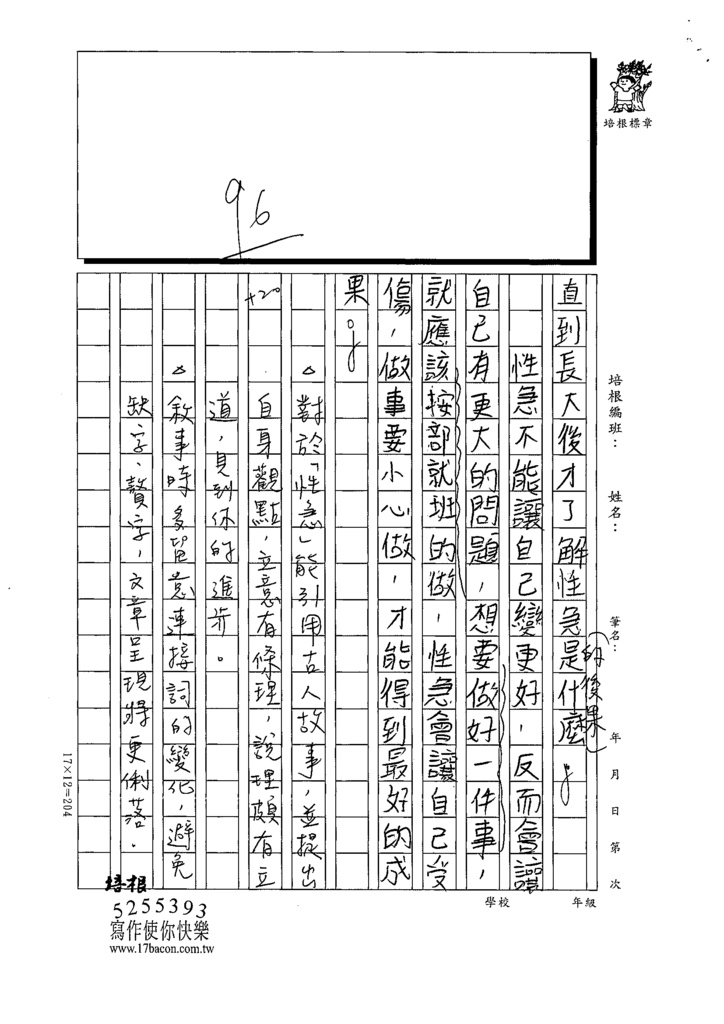 培根標章
96
培根編班：　姓名：　筆名：　年　月　日　第　次
學校　年級
直到長大後才了解性急是什麼。
的後果
性急不能讓自己變更好，反而會讓
自己有更大的問題，想要做好一件事，
就應該按部就班的做，性急會讓自己受
傷，做事要小心做，才能得到最好的成
果。
△對於「性急」能引用古人故事，並提出
+20
自身觀點，立意有條理，說理頗有立
道，見到你的進步。
△敘事時多留意連接詞的變化，避免
缺字、贅字，文章呈現將更俐落.
17×12=204
培根
5255393
寫作使你快樂
www.17bacon.com.tw